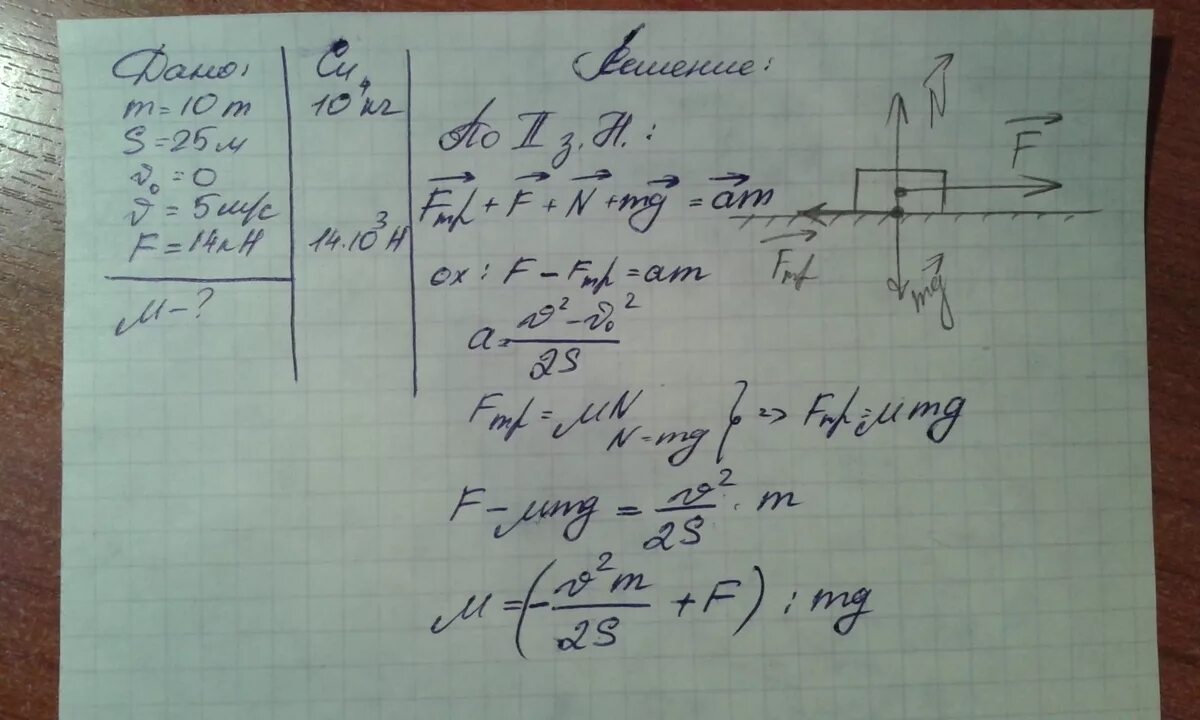 Дано:
m = 10 т
S = 25 м
v₀ = 0
v = 5 м/с
F = 14 кН
μ – ?
Си
10⁴ кг
14·10³ Н
Решение:
По II з. Н.:
F⃗тр + F⃗ + N⃗ + mg⃗ = a⃗m
ох: F – Fтр = am
a = (v² – v₀²)/2S
Fтр = μN
N = mg } => Fтр = μmg
F – μmg = v²/2S · m
μ = (– v²m/2S + F) : mg
N⃗
F⃗
F⃗тр
mg⃗